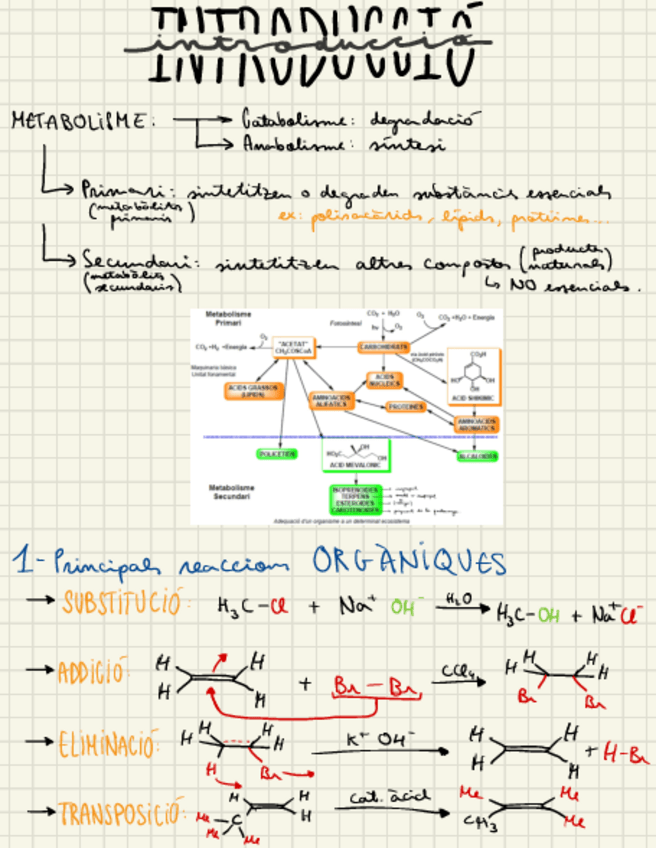 INTRODUCCIÓ
introducció
METABOLISME: → Catabolisme: degradació
→ Anabolisme: síntesi
→ Primari: sintetitzen o degraden substàncies essencials
(metabòlits primaris)
ex: polisacàrids, lípids, proteïnes...
→ Secundari: sintetitzen altres compostos (productes naturals)
(metabòlits secundaris)
↳ NO essencials.
Metabolisme Primari
CO₂ + H₂O
Fotosíntesi
hν
O₂
O₂
CO₂ +H₂O + Energia
O₂
CO₂ +H₂ +Energia
"ACETAT"
CH₃COSCoA
CARBOHIDRATS
Maquinària bàsica
Unitat fonamental
ÀCIDS GRASSOS
(LÍPIDS)
AMINOÀCIDS
ALIFÀTICS
ÀCIDS
NUCLEICS
PROTEÏNES
CO₂H
HO
OH
OH
ÀCID SHIKÍMIC
AMINOÀCIDS
AROMÀTICS
POLICÈTIDS
HO₂C
OH
OH
ÀCID MEVALÒNIC
ALCALOIDES
Metabolisme
Secundari
ISOPRENOIDES
TERPENS
ESTEROIDES
CAROTENOIDES
Adequació d'un organisme a un determinat ecosistema
1-Principals reaccions ORGÀNIQUES
→ SUBSTITUCIÓ: H₃C-Cl + Na⁺ OH⁻ H₂O → H₃C-OH + Na⁺Cl⁻
→ ADDICIÓ: H H H H + Br-Br CCl₄ → H H H H Br Br
→ ELIMINACIÓ: H H H H H Br K⁺ OH⁻ → H H H H + H-Br
→ TRANSPOSICIÓ: H H H Me C Me Me cat. àcid → Me CH₃ Me Me